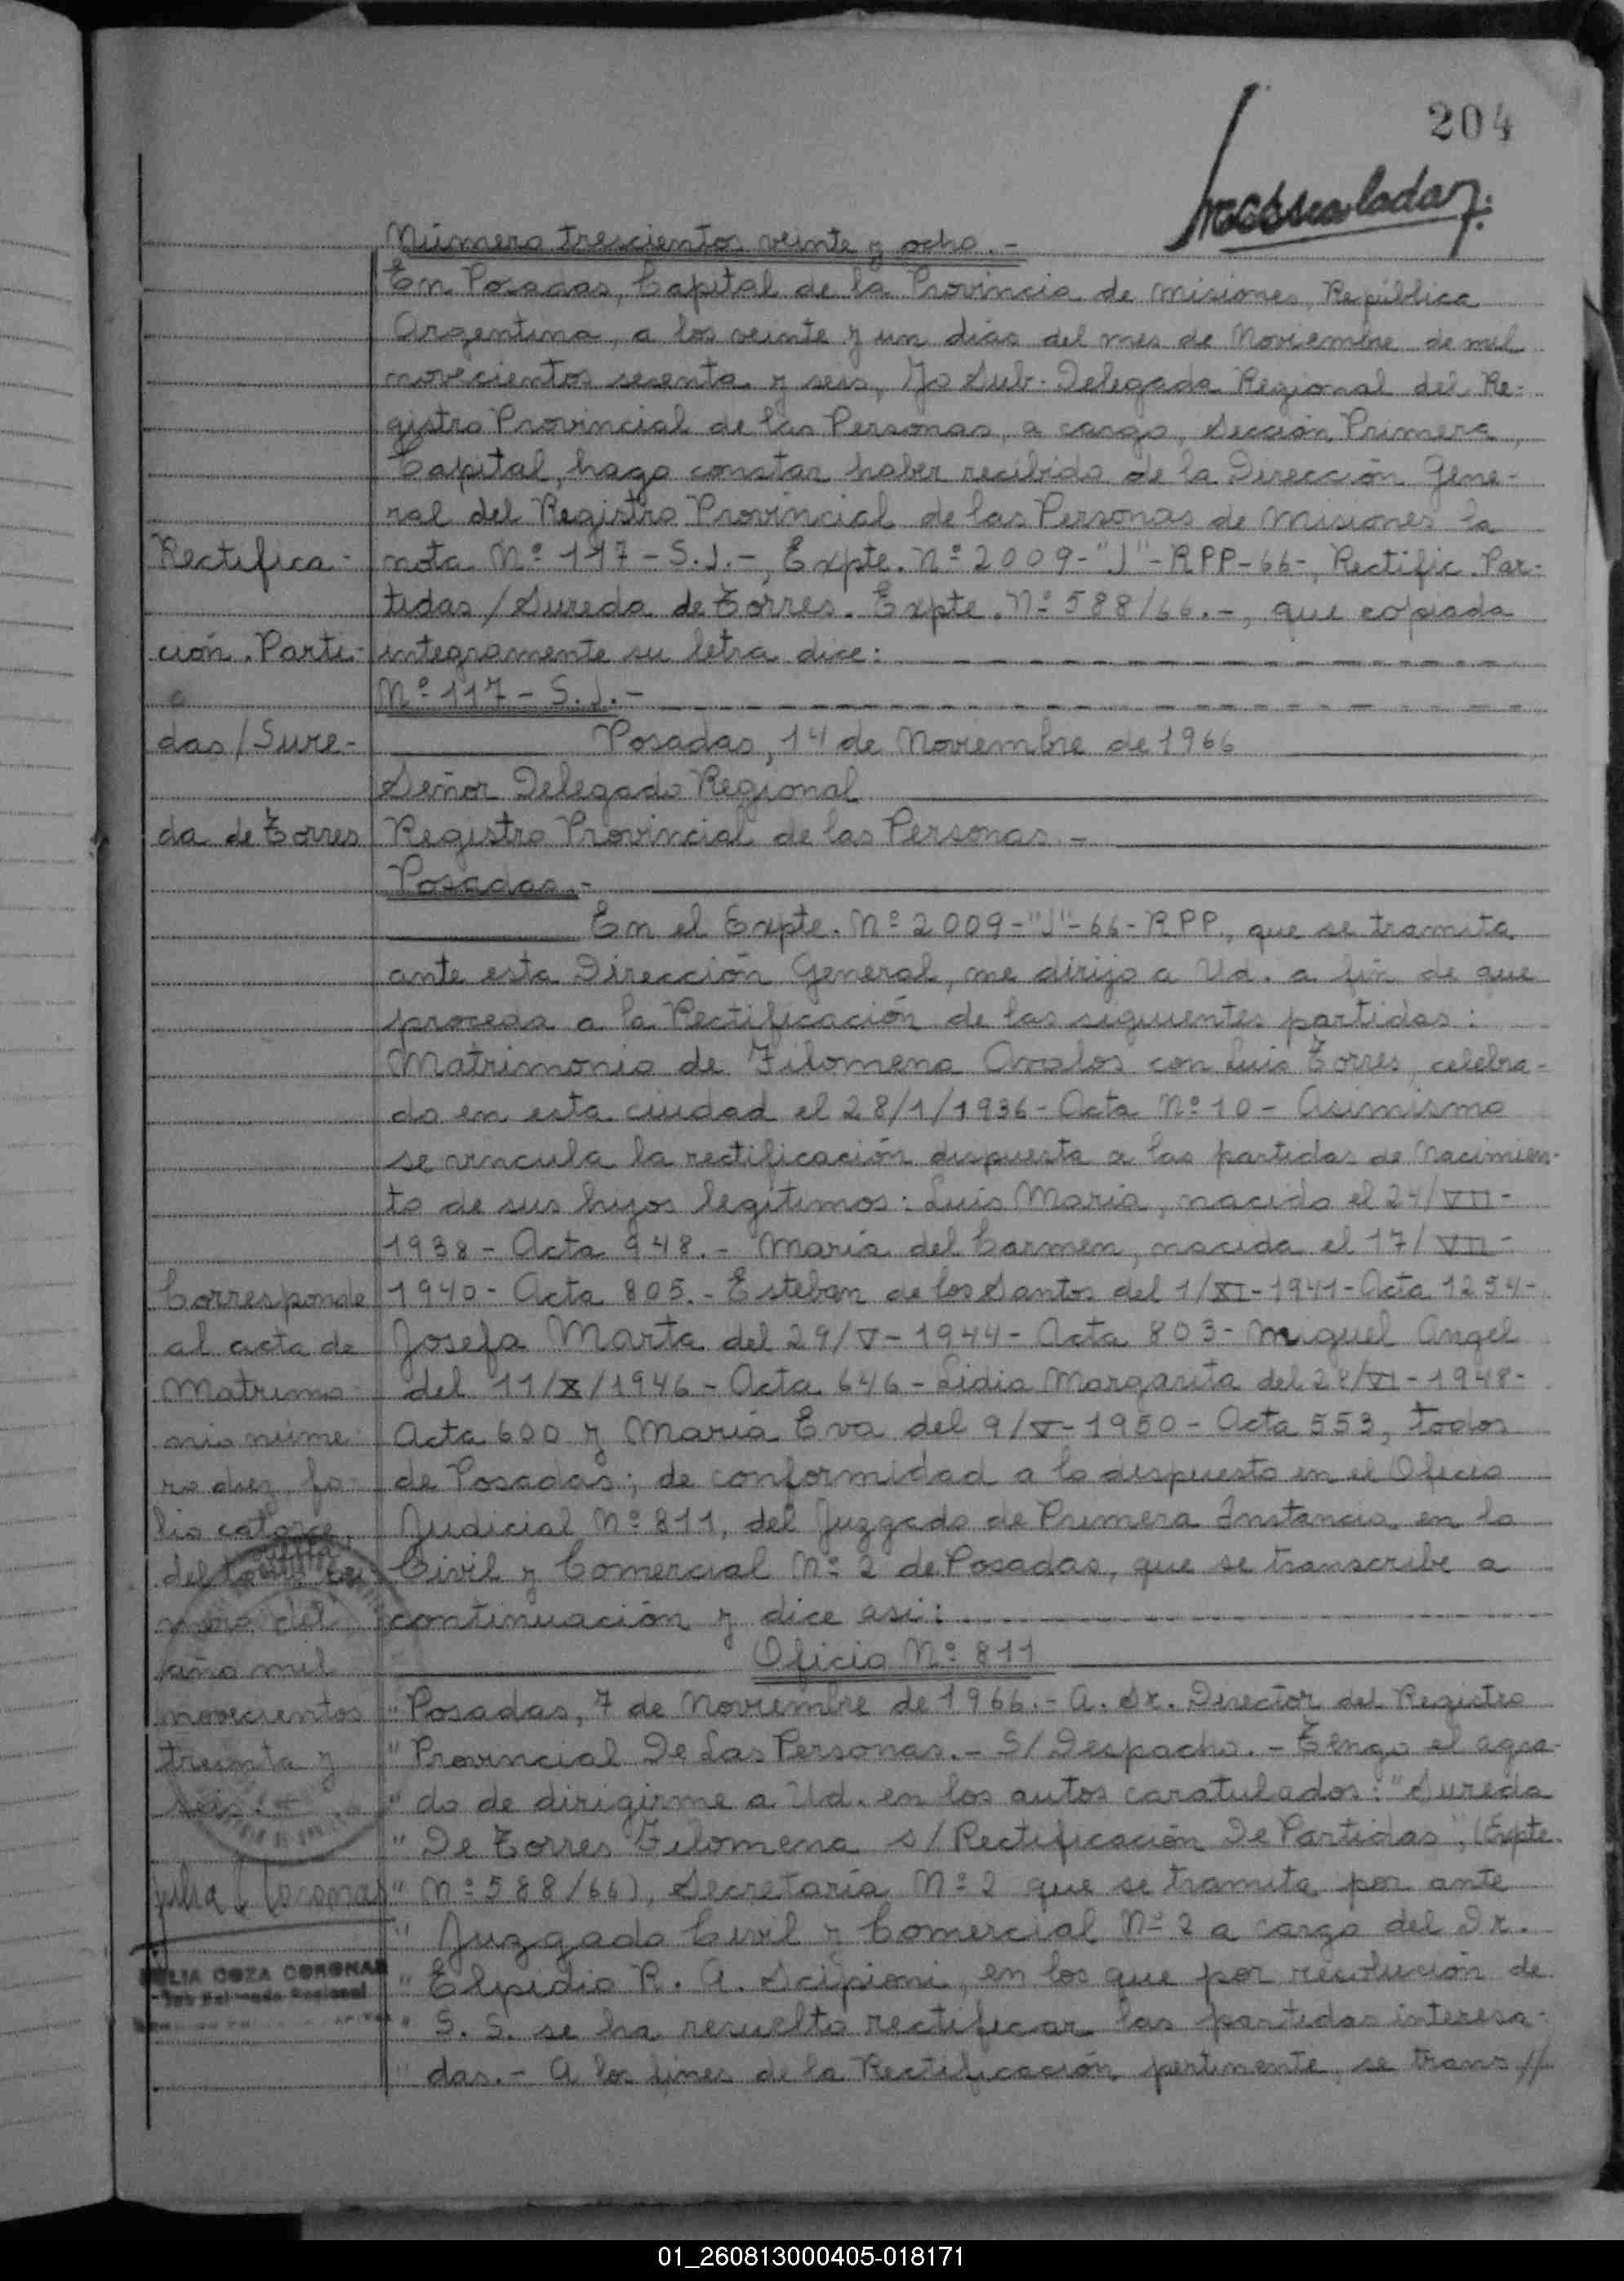 204
Número trescientos veinte y ocho.-
En Posadas, Capital de la Provincia de Misiones, República
Argentina, a los veinte y un días del mes de Noviembre de mil
novecientos sesenta y seis, Yo Sub-Delegada Regional del Re-
gistro Provincial de las Personas, a cargo, Sección Primera,
Capital, hago constar haber recibido de la Dirección Gene-
ral del Registro Provincial de las Personas de Misiones la
Rectifica- nota Nº 117-S.J.-, Expte. Nº 2009-"J"-RPP-66-, Rectific. Par-
tidas/Sureda de Torres. Expte. Nº 588/66.-, que copiada
ción. Parti- integramente su letra dice:
Nº 117-S.J.-
das/Sure- Posadas, 14 de Noviembre de 1966
Señor Delegado Regional
da de Torres Registro Provincial de las Personas.-
Posadas.-
En el Expte. Nº 2009-"J"-66-RPP., que se tramita
ante esta Dirección General, me dirijo a Ud. a fin de que
proceda a la Rectificación de las siguientes partidas:
Matrimonio de Filomena Avalos con Luis Torres, celebra-
do en esta ciudad el 28/1/1936- Acta Nº 10- Asimismo
se vincula la rectificación dispuesta a las partidas de Nacimien-
to de sus hijos legítimos: Luis María, nacido el 24/VII-
1938- Acta 948.- María del Carmen, nacida el 17/VII-
Corresponde 1940- Acta 805.- Esteban de los Santos del 1/XI-1941-Acta 1254-
al acta de Josefa Marta del 29/V-1944- Acta 803- Miguel Angel
Matrimo- del 11/X/1946- Acta 646- Lidia Margarita del 28/VI-1948-
nio núme- Acta 600 y María Eva del 9/V-1950- Acta 553, todos
ro diez, fo- de Posadas; de conformidad a lo dispuesto en el Oficio
lio catorce, Judicial Nº 811, del Juzgado de Primera Instancia en lo
del Civil y Comercial Nº 2 de Posadas, que se transcribe a
del continuación y dice así:
año mil Oficio Nº 811
novecientos "Posadas, 7 de Noviembre de 1966.- A. Sr. Director del Registro
treinta y "Provincial De Las Personas.- S/Despacho.- Tengo el agra-
seis.- "do de dirigirme a Ud. en los autos caratulados: "Sureda
"De Torres Filomena s/Rectificación De Partidas", (Expte.
Julia C. Coronas "Nº 588/66), Secretaría Nº 2 que se tramita por ante
"Juzgado Civil y Comercial Nº 2 a cargo del Dr.
JULIA COZA CORONAS "Elpidio R. A. Scipioni, en los que por resolución de
Sub Delegada Regional "S. S. se ha resuelto rectificar las partidas interesa-
"das.- A los fines de la Rectificación pertinente se trans//
01_260813000405-018171